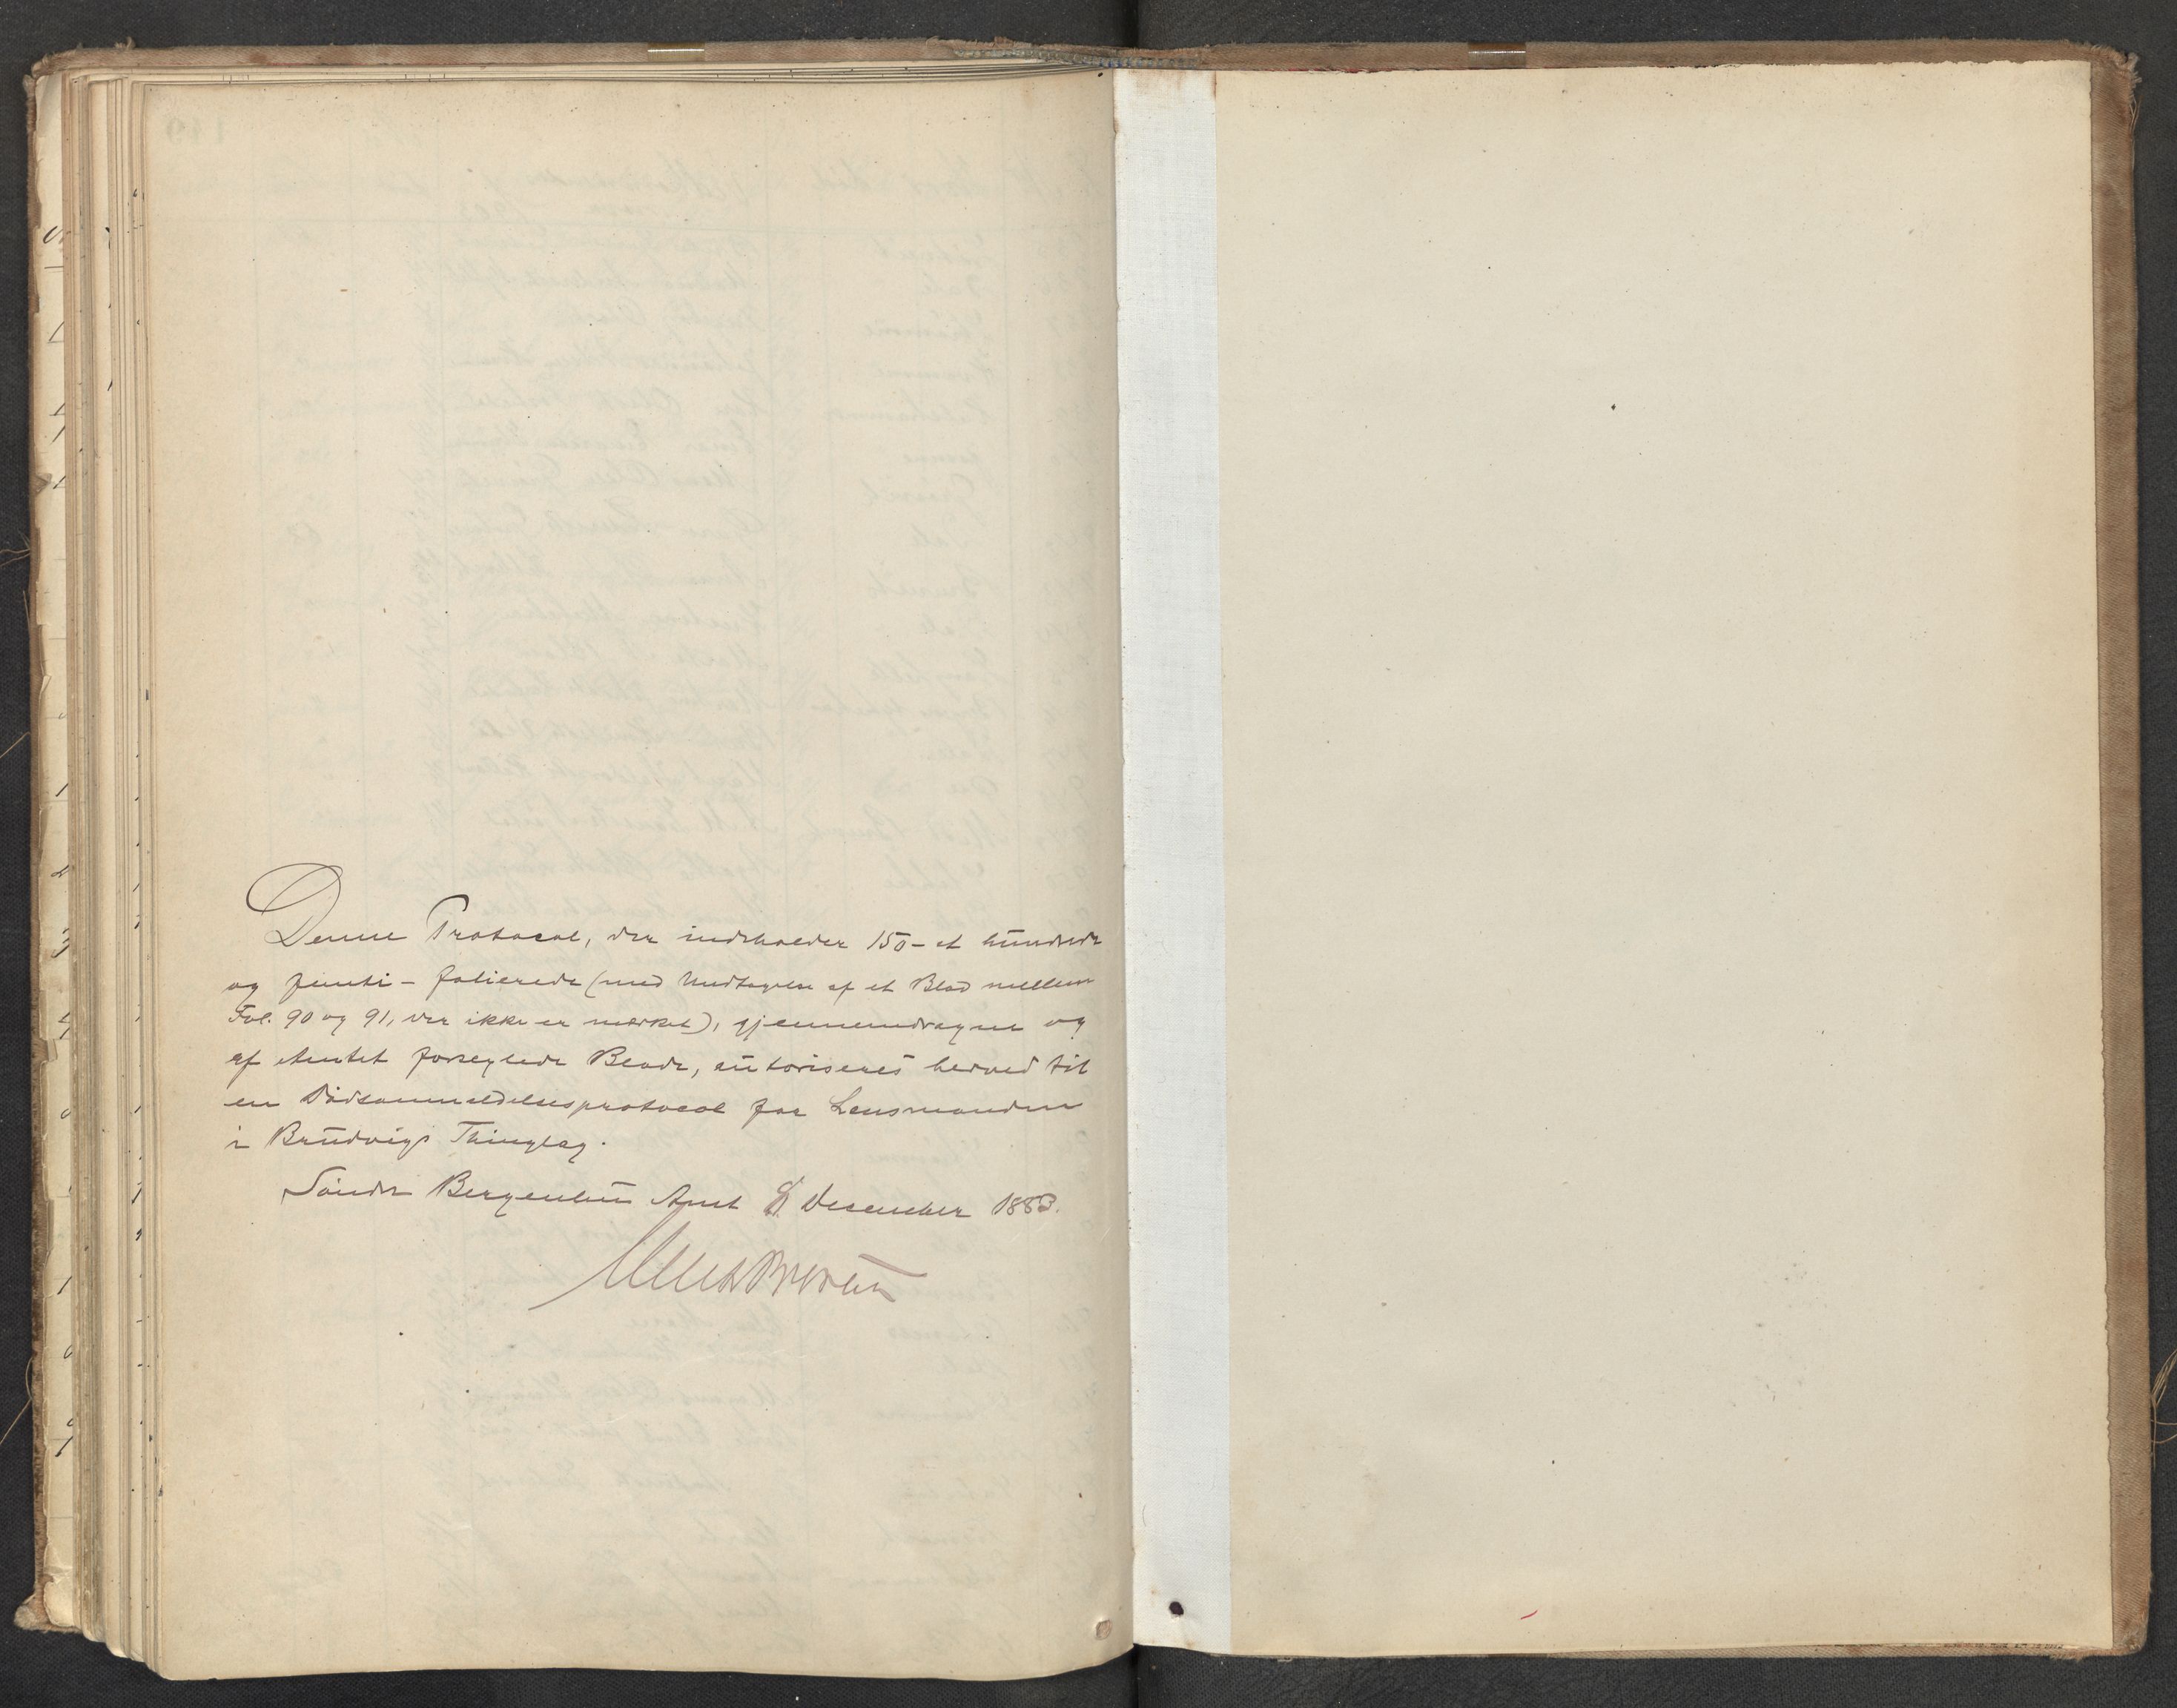 Denne Protocol, der indeholder 150 - et hundrede
og femti - folierede (med Undtagelse af et Blad mellem
Fol. 90 og 91, der ikke er mærket), gjennemdragne og
af Amtet forseglede Blade, autoriseres herved til
en Dødsanmeldelsesprotocol for Lensmanden
i Brudvigs Thinglag.
Søndre Bergenhus Amt 8 December 1883.